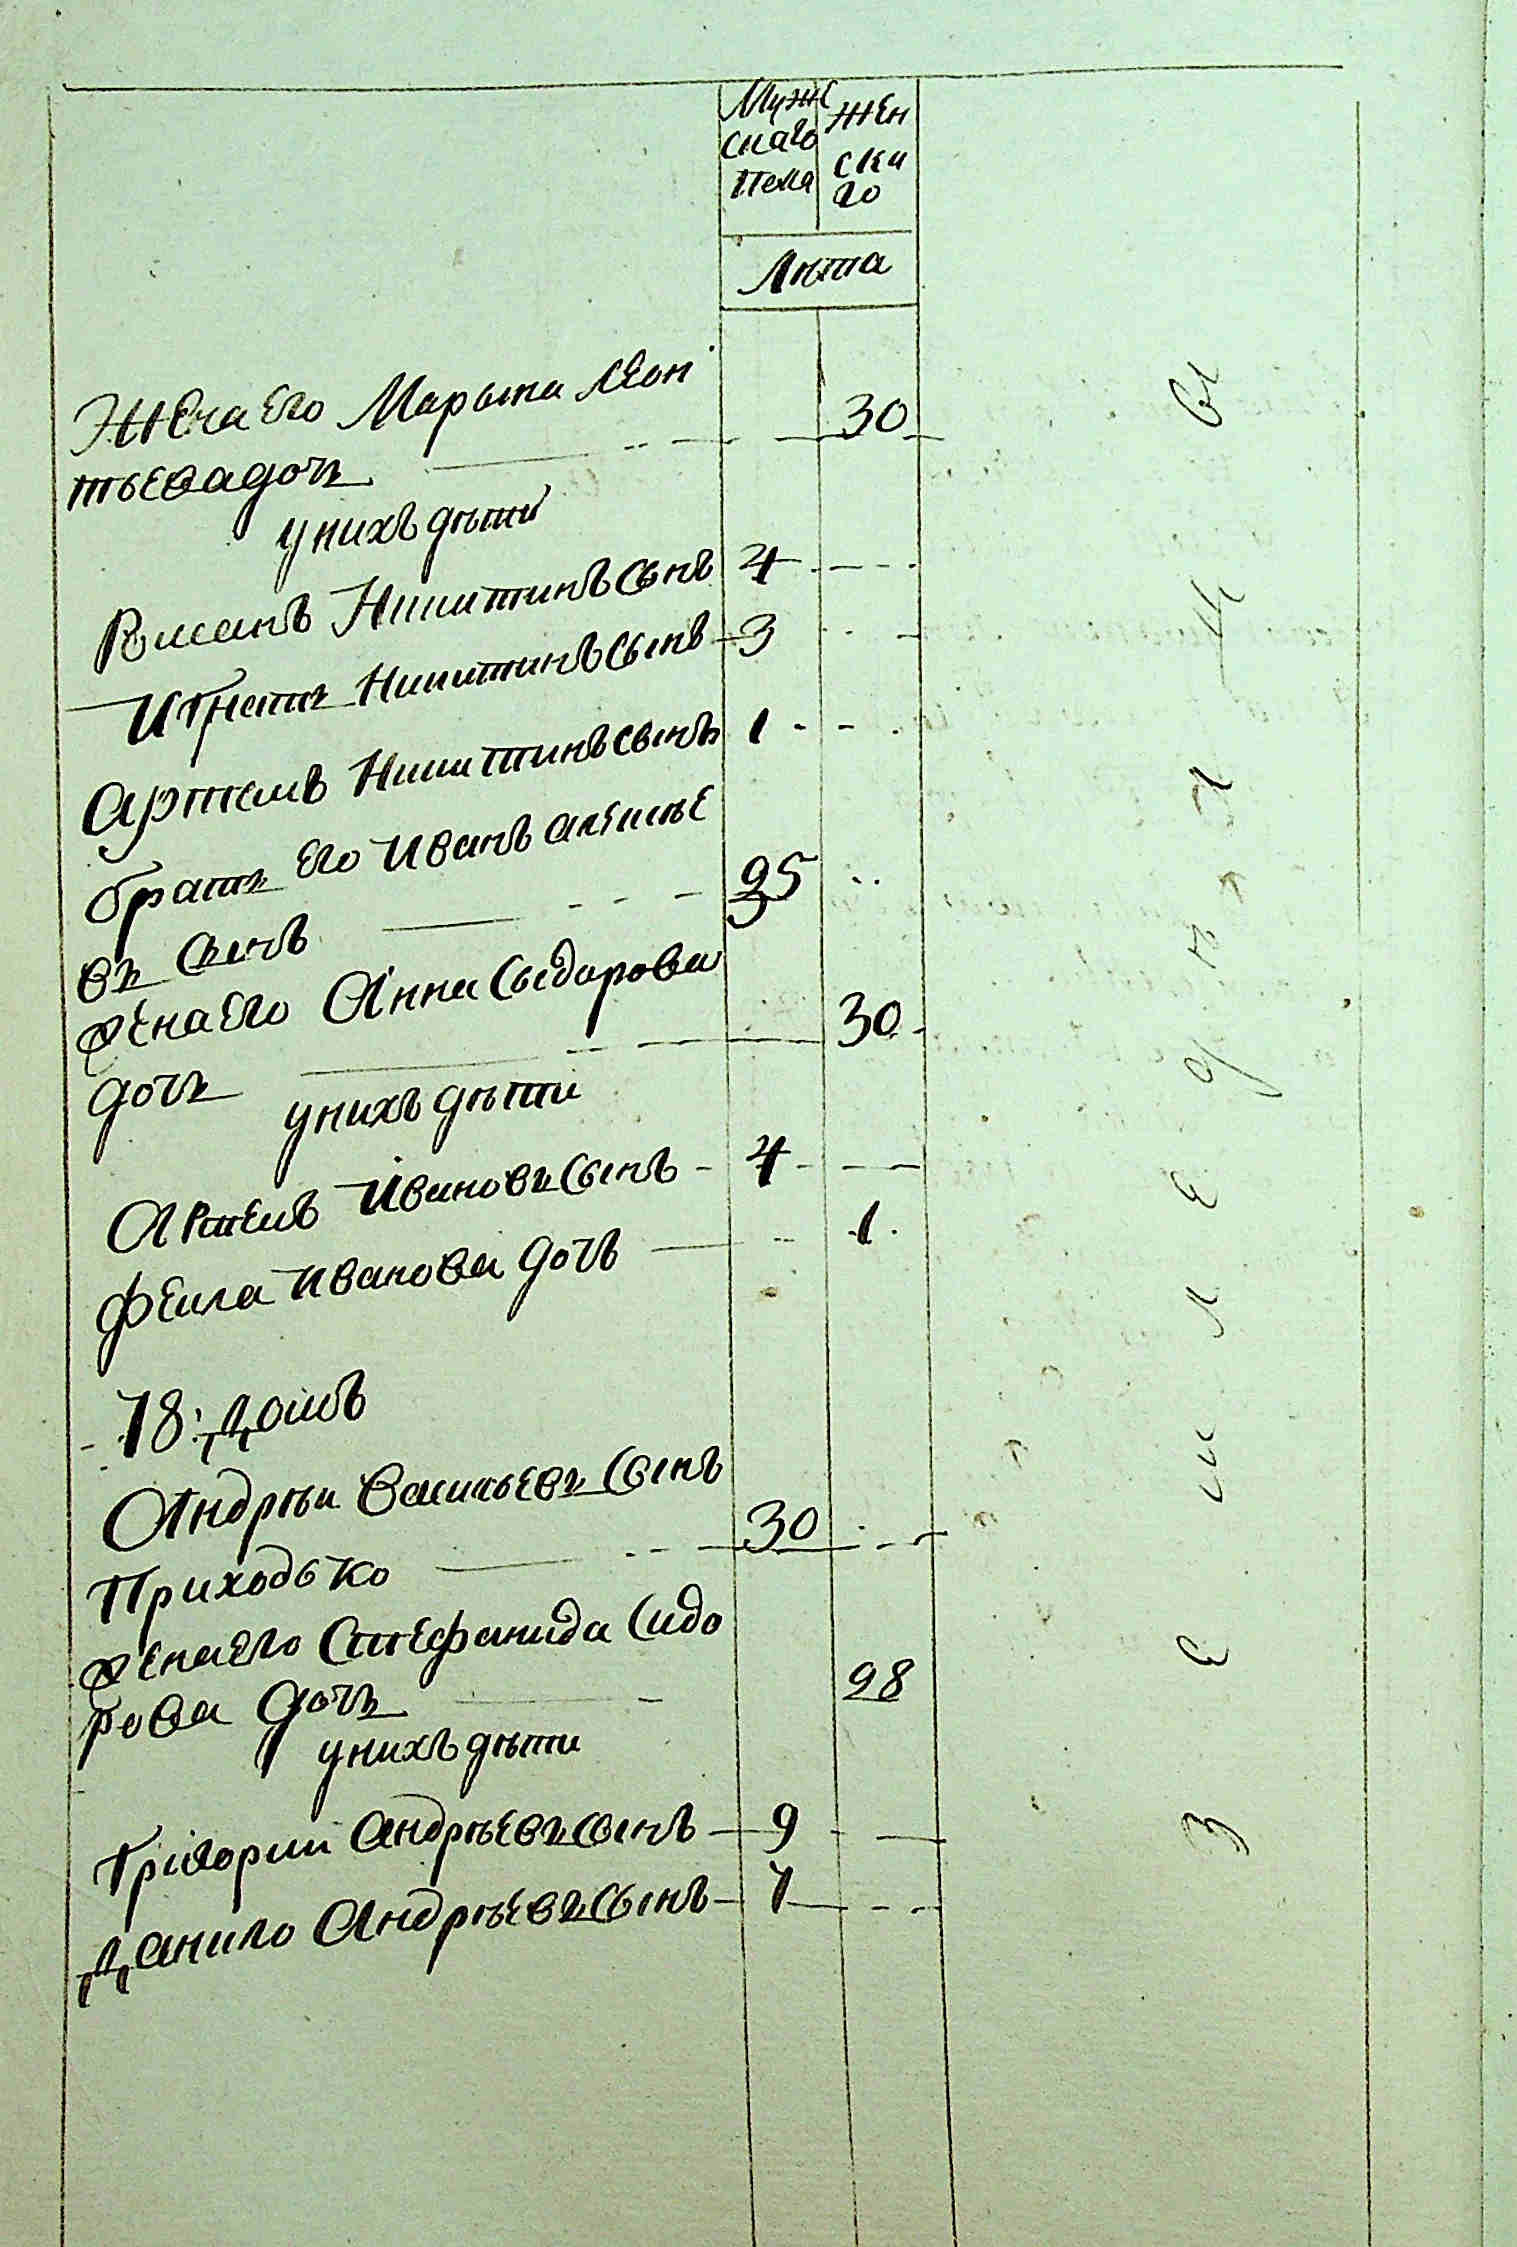 Мужс
скаго
пола
Жен
ска
го
Лѣта
Жена его Марѳта Леон
тьева дочь 30
у нихъ дѣти
Никитинъ сынъ 4
Игнатъ Никитинъ сынъ 3
Артемъ Никитинъ сынъ 1
братъ его Иванъ Алексѣе
въ сынъ 35
жена его Анна Сыдорова
дочь 30
у нихъ дѣти
Артемъ Ивановъ сынъ 4
Фекла Иванова дочь 1
18: Домъ
Андрѣи Васильевъ сынъ
Приходько 30
жена его Стефанида Сидо
рова дочь 28
у нихъ дѣти
Григории Андрѣевъ сынъ 9
Данило Андрѣевъ сынъ 7
земледѣлцы